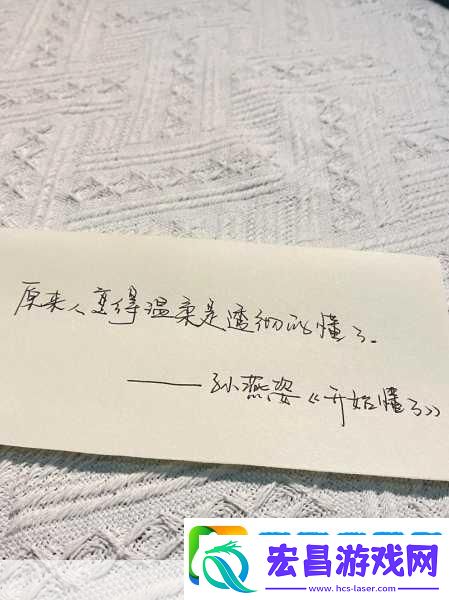 原来人变得温柔是透彻的懂了.
——孙燕姿《开始懂了》
宏昌游戏网
www.hcs-laser.com